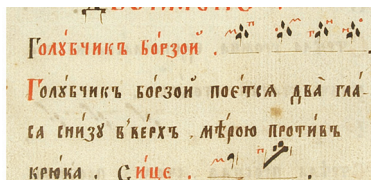 Голꙋ́бчикъ бо́рзой .
Голꙋ́бчикъ бо́рзой пое́тсѧ два̀ гла́-
са сни́зꙋ в̾ве́рхъ . мѣ́рою проти́въ
крю́ка . Си́це .